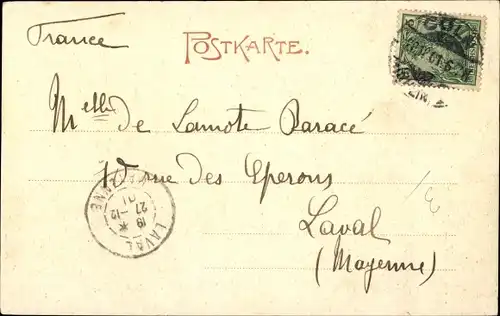 France
POSTKARTE.
Melle de Lamote Baracé
10 rue des Eperons
Laval
(Mayenne)
LAVAL
27 -12
01